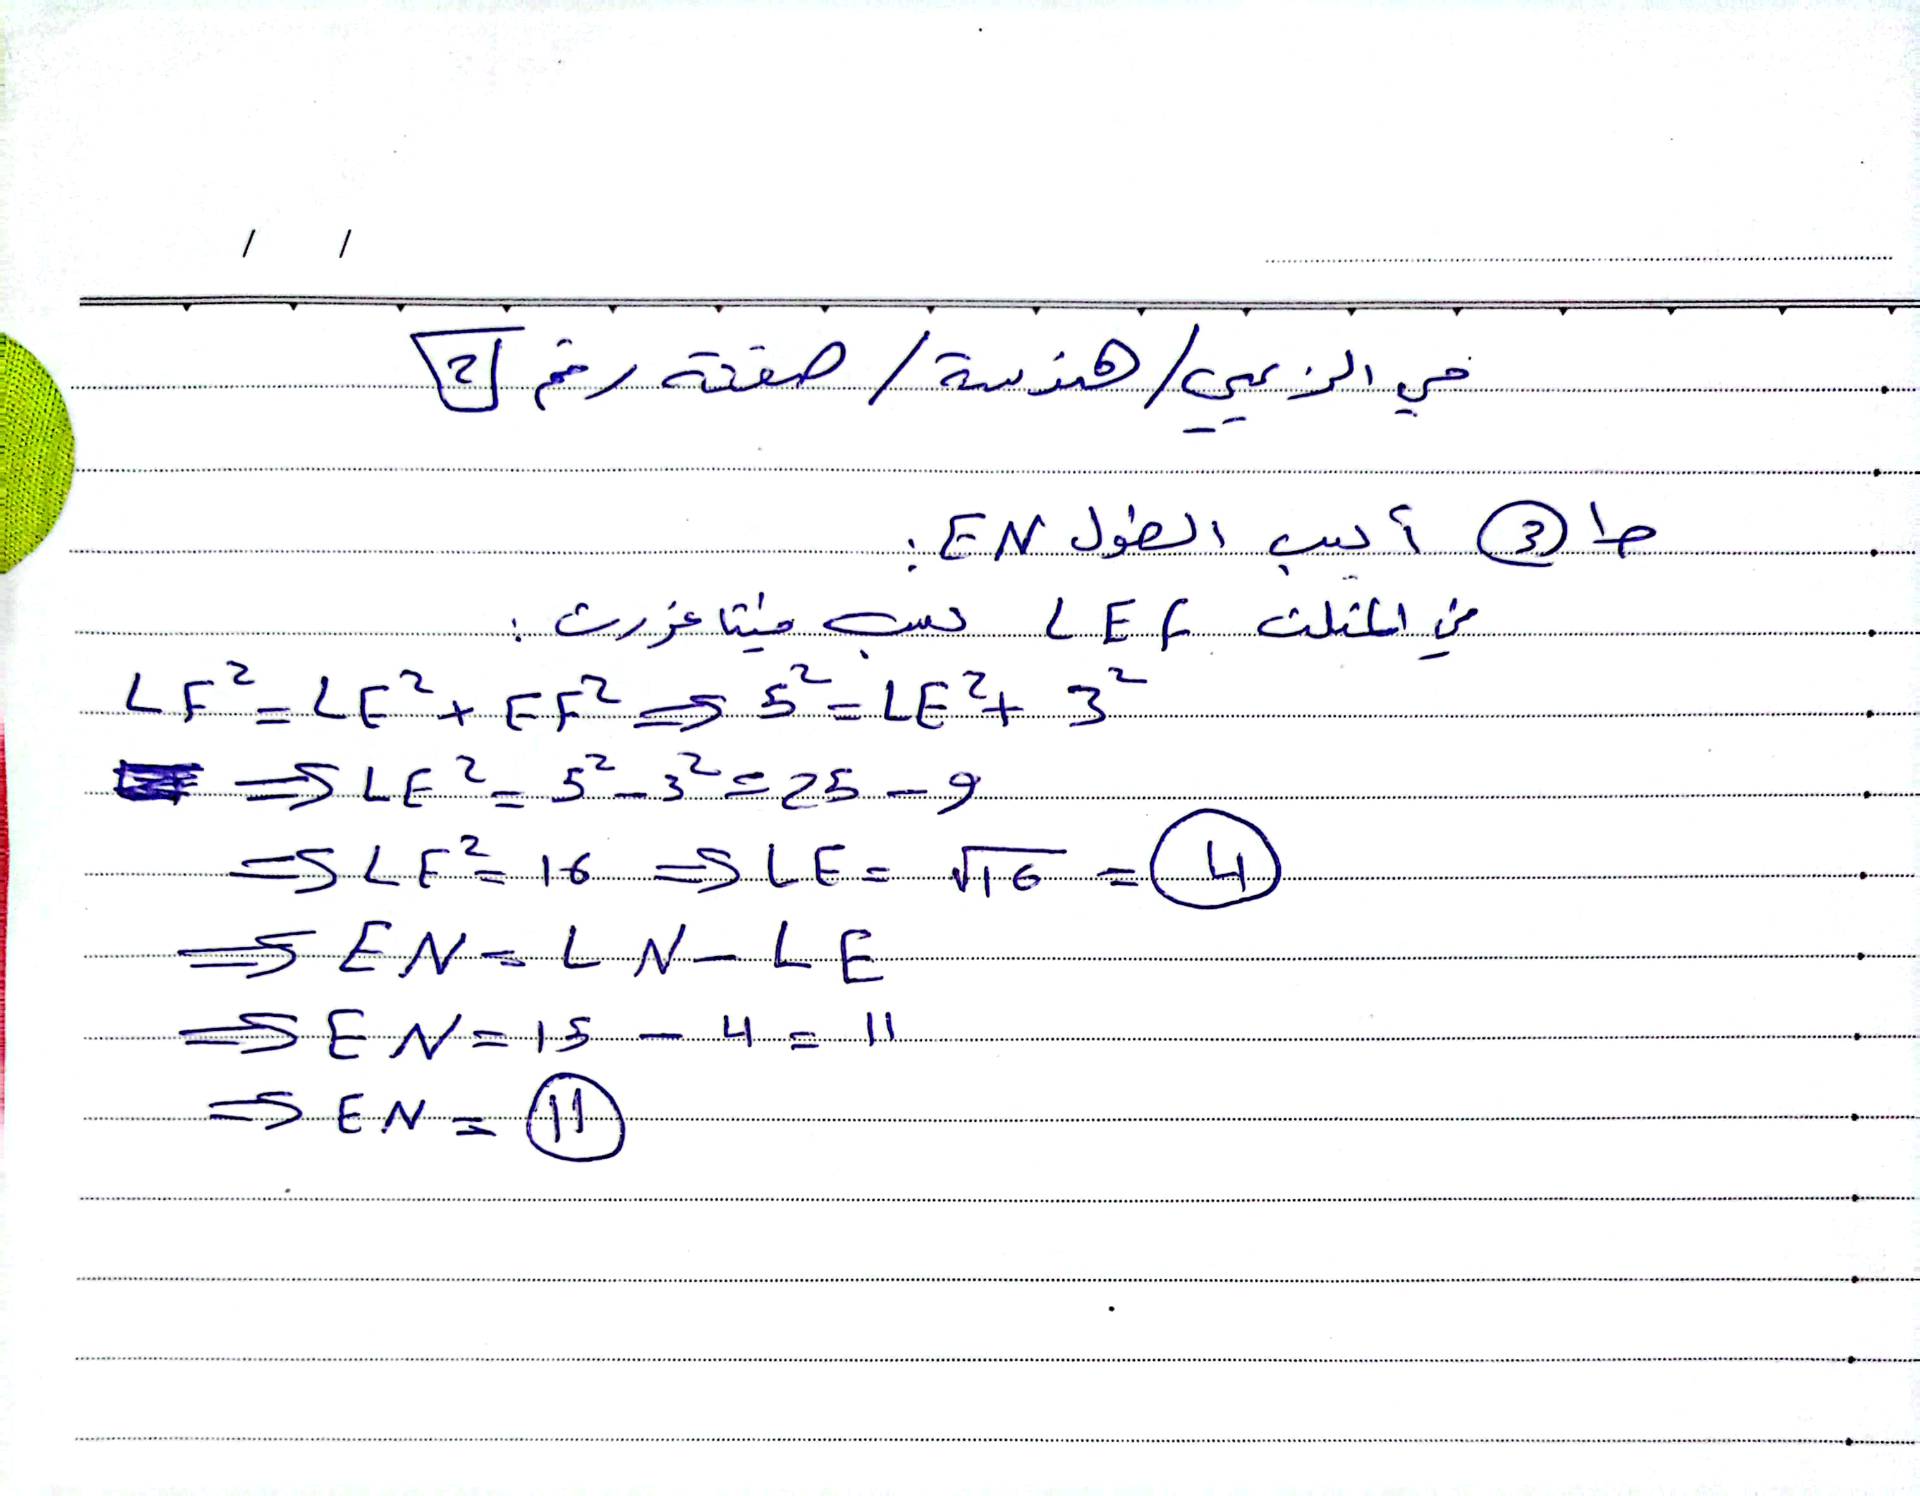 / /
الزعبي / هندسة / صفحة رقم 2
ط 3 أحسب الطول EN :
في المثلث LEF حسب فيثاغورث :
LF² = LE² + EF² ⇒ 5² = LE² + 3²
⇒ LE² = 5² - 3² = 25 - 9
⇒ LE² = 16 ⇒ LE = √16 = 4
⇒ EN = LN - LE
⇒ EN = 15 - 4 = 11
⇒ EN = 11